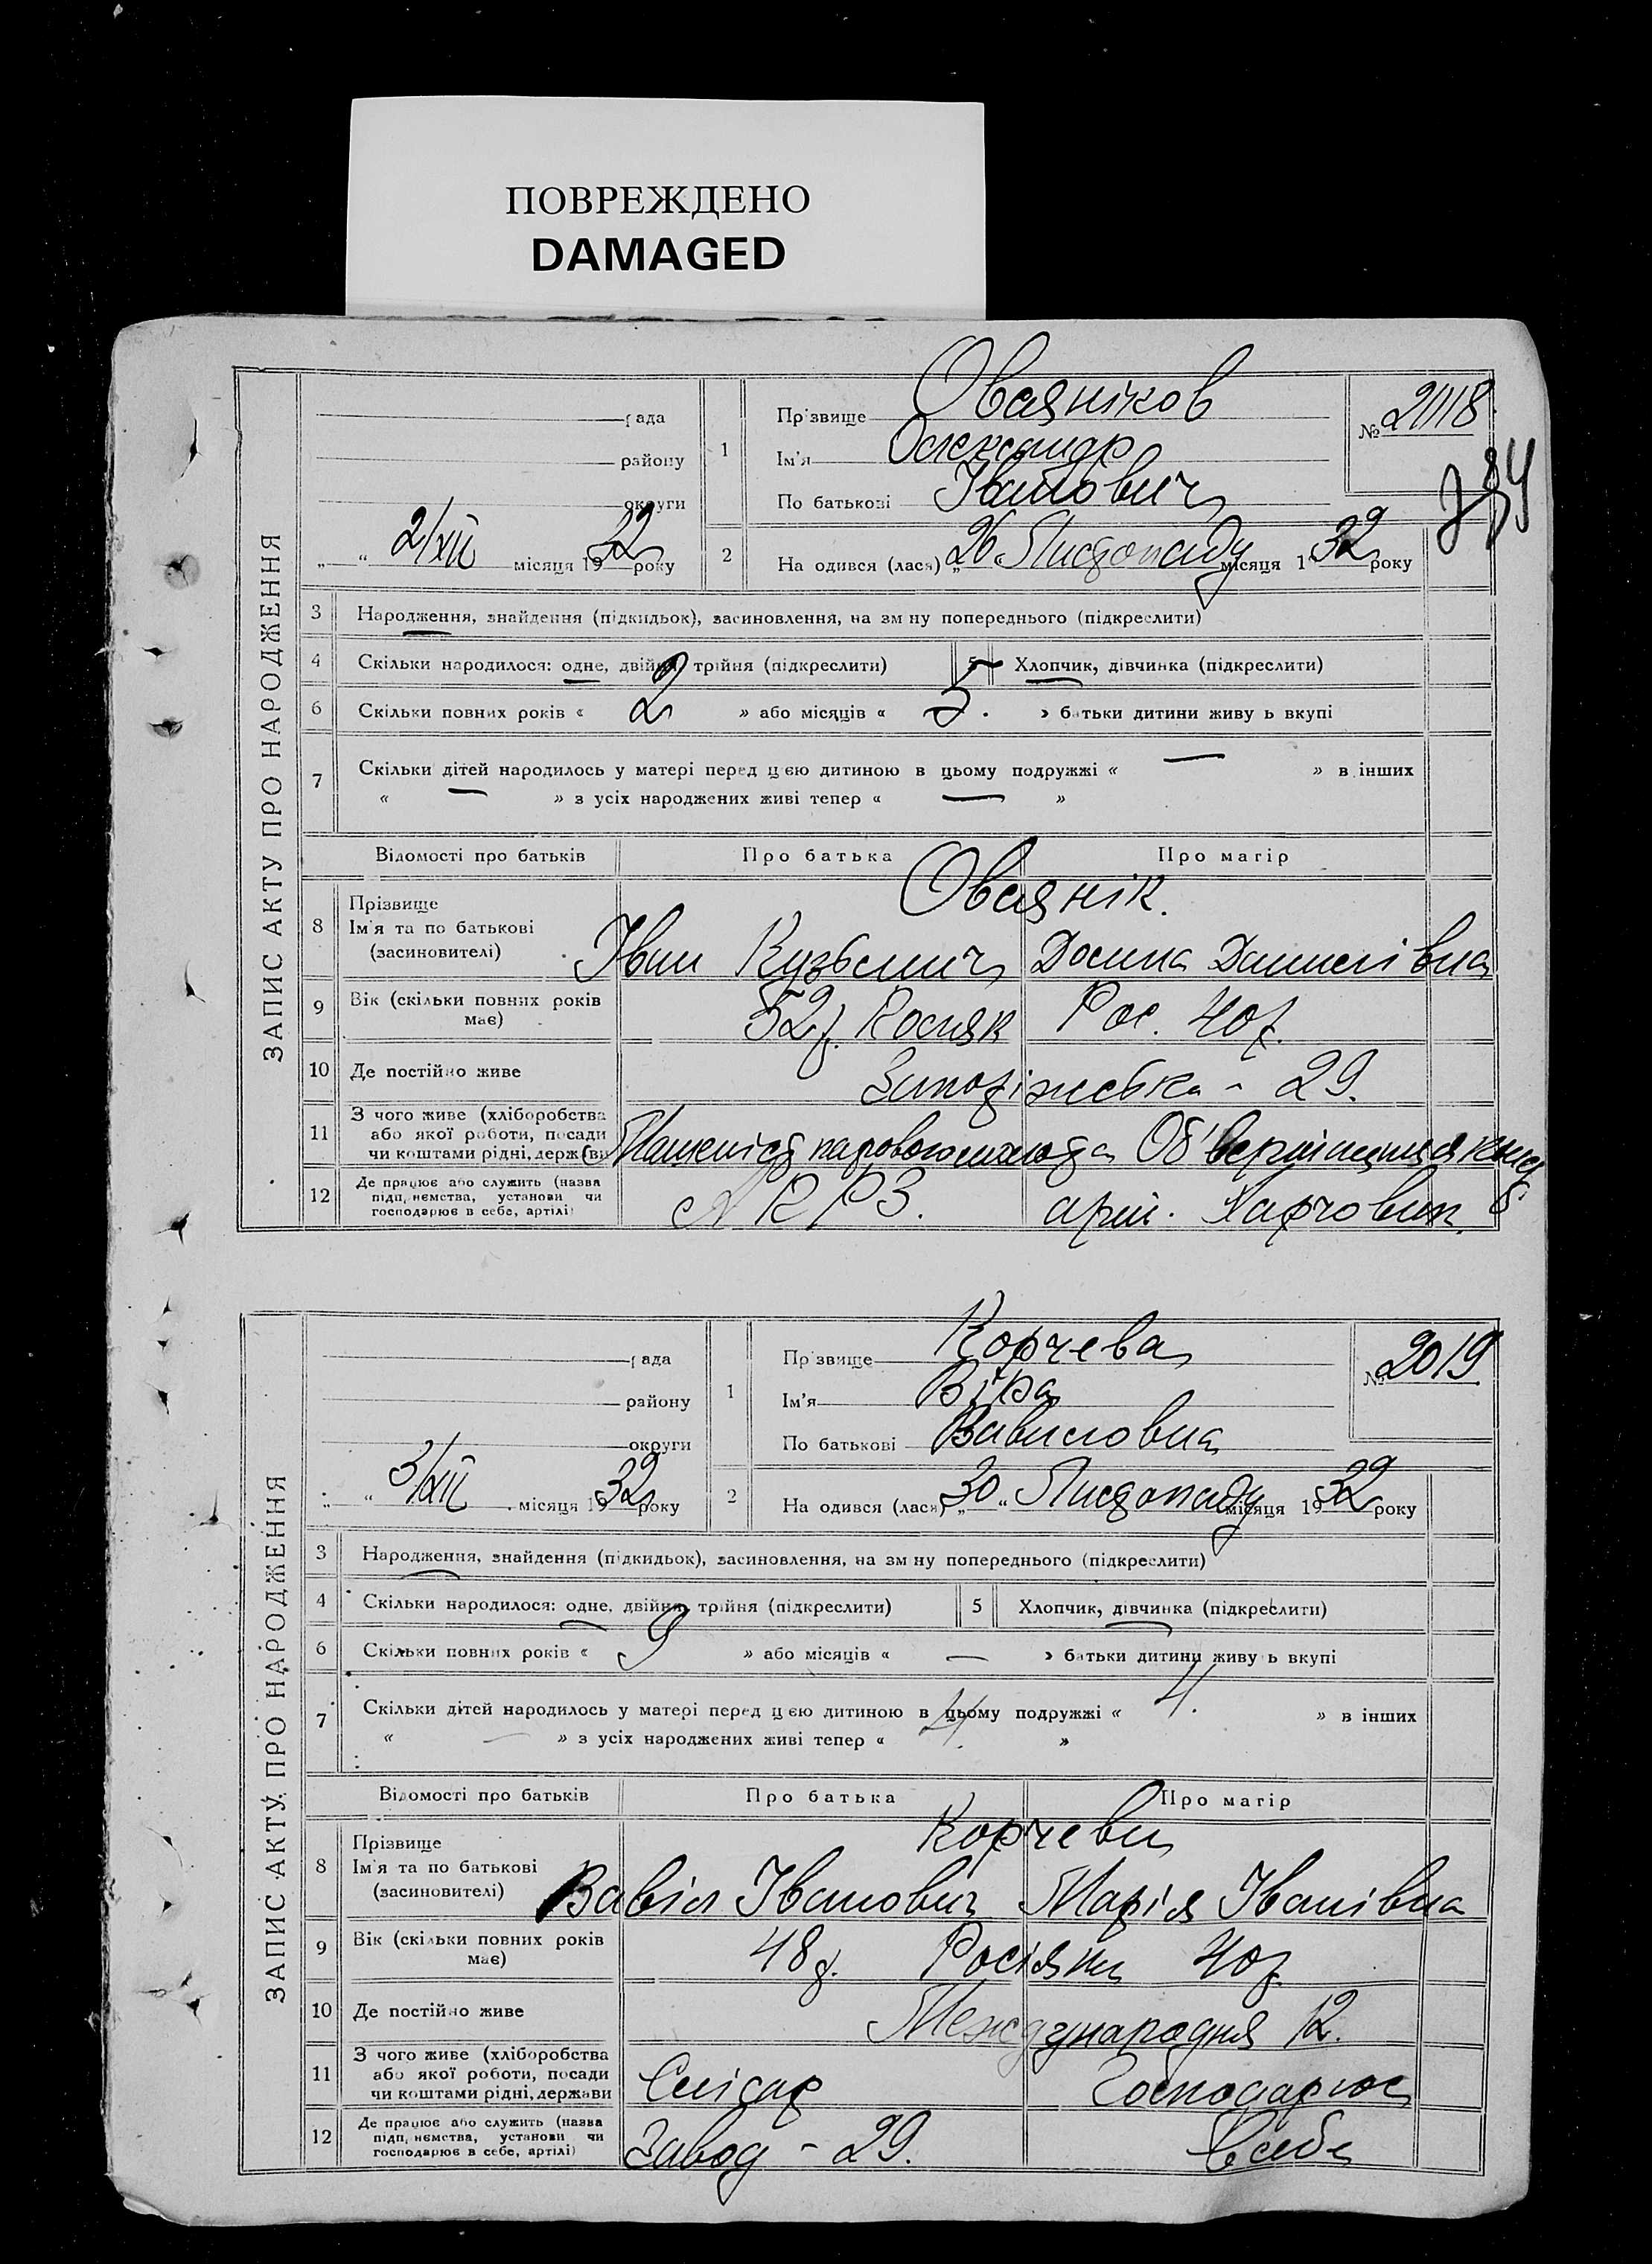 ПОВРЕЖДЕНО
DAMAGED
ЗАПИС АКТУ ПРО НАРОДЖЕННЯ
рада
району
округи
2/XII місяця 1932 року
1
Прізвище
Ім'я Олександр
По батькові Іванович
№ 2118
2
На одився (лася) „26 Листопаду місяця 1 32 року
3 Народження, знайдення (підкидьок), засиновлення, на зм ну попереднього (підкреслити)
4 Скільки народилося: одне, двійня, трійня (підкреслити) 5 Хлопчик, дівчинка (підкреслити)
6 Скільки повних років « 2 » або місяців « 5. » батьки дитини живу ь вкупі
7 Скільки дітей народилось у матері перед цією дитиною в цьому подружжі « — » в інших
« — » з усіх народжених живі тепер « — »
Відомості про батьків Про батька Про матір
8 Прізвище
Ім'я та по батькові
(засиновителі)
Іван Кузьмич
9 Вік (скільки повних років має)
52 р. Рос. 40 р.
10 Де постійно живе
Запоріжська - 29.
11 З чого живе (хліборобства або якої роботи, посади чи коштами рідні, держави)
Машеніст
12 Де працює або служить (назва підприємства, установи чи господарює в себе, артілі)
арт. Харчовик.
ЗАПИС АКТУ ПРО НАРОДЖЕННЯ
рада
району
округи
3/XII місяця 1932 року
1
Прізвище Корчева
Ім'я Віра
По батькові Вавиловна
№ 2019
2
На одився (лася) „30" Листопаду місяця 1932 року
3 Народження, знайдення (підкидьок), засиновлення, на зм ну попереднього (підкреслити)
4 Скільки народилося: одне, двійня, трійня (підкреслити) 5 Хлопчик, дівчинка (підкреслити)
6 Скільки повних років « 9 » або місяців « — » батьки дитини живу ь вкупі
7 Скільки дітей народилось у матері перед цією дитиною в цьому подружжі « 4. » в інших
« — » з усіх народжених живі тепер « 4. »
Відомості про батьків Про батька Про матір
8 Прізвище
Ім'я та по батькові
(засиновителі)
Корчеви
Вавіл Іванович Марія Іванівна
9 Вік (скільки повних років має)
48 р. Росіяни 40 р.
10 Де постійно живе
Международня 12.
11 З чого живе (хліборобства або якої роботи, посади чи коштами рідні, держави
Слісар Господарює
12 Де працює або служить (назва підприємства, установи чи господарює в себе, артілі)
Завод - 29. В себе